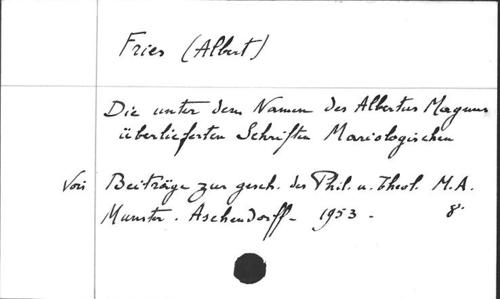 Fries (Albert)
Die unter dem Namen des Albertus Magnus
überlieferten Schriften Mariologischen
Voir Beiträge zur gesch. des Phil. u. Theol. M.A.
Munster. Aschendorff - 1953 - 8°